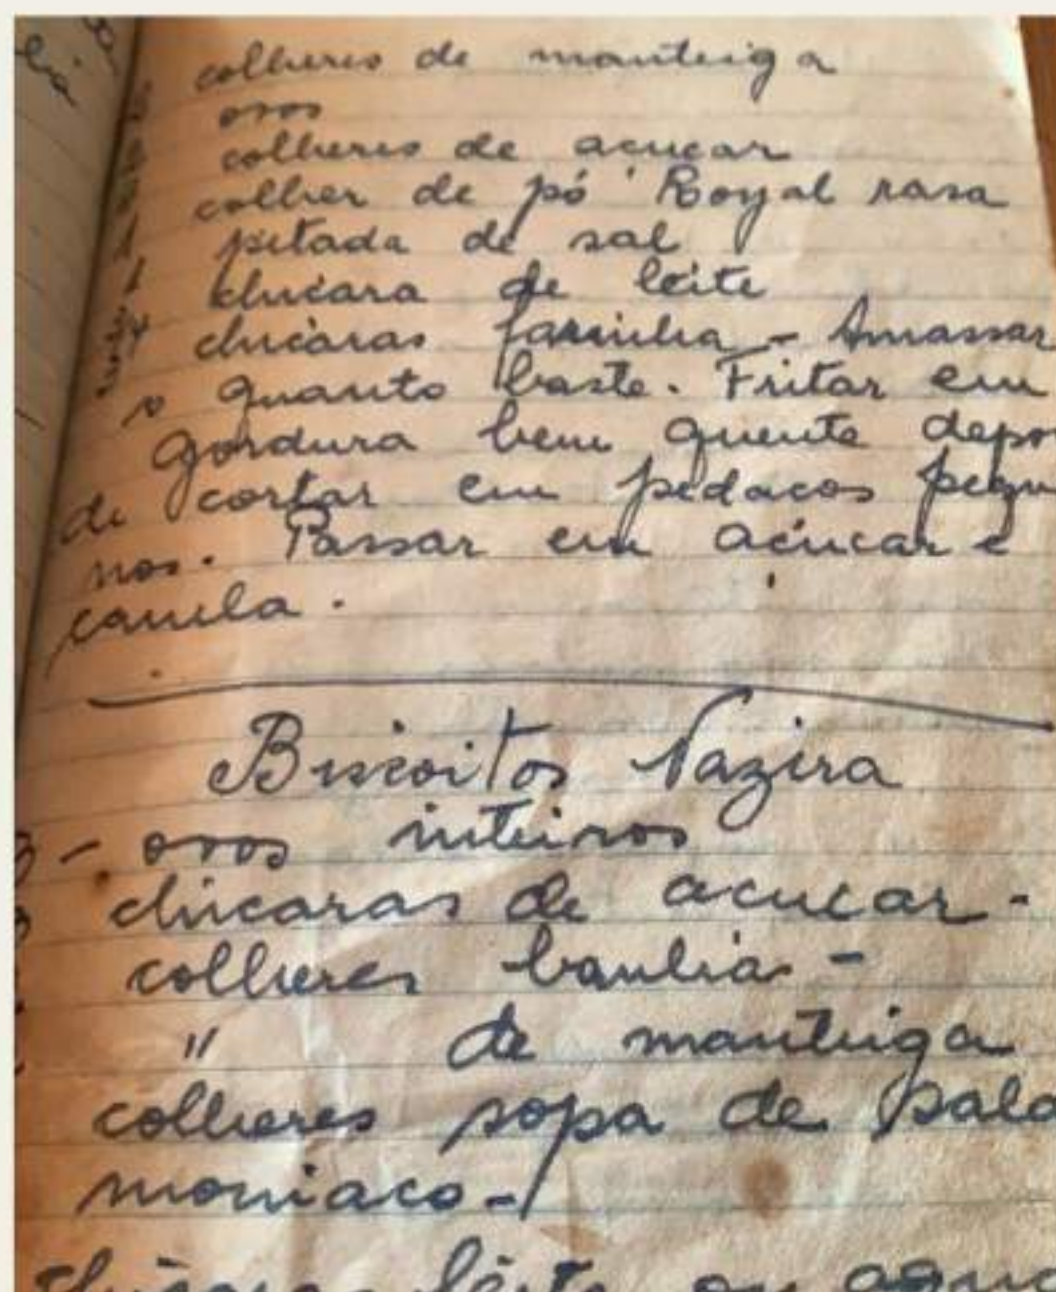 colheres de manteiga
ovos
colheres de acucar
colher de pó Royal rasa
1 pitada de sal
1 chicara de leite
4 chicaras farinha - Amassar
o quanto baste. Fritar em
gordura bem quente depo
de cortar em pedacos pequ
nos. Passar em acúcar e
canela.
Biscoitos Nazira
- ovos inteiros
chicaras de acucar -
colheres banha -
" de manteiga
colheres sopa de sala
moniaco -
leite ou agua